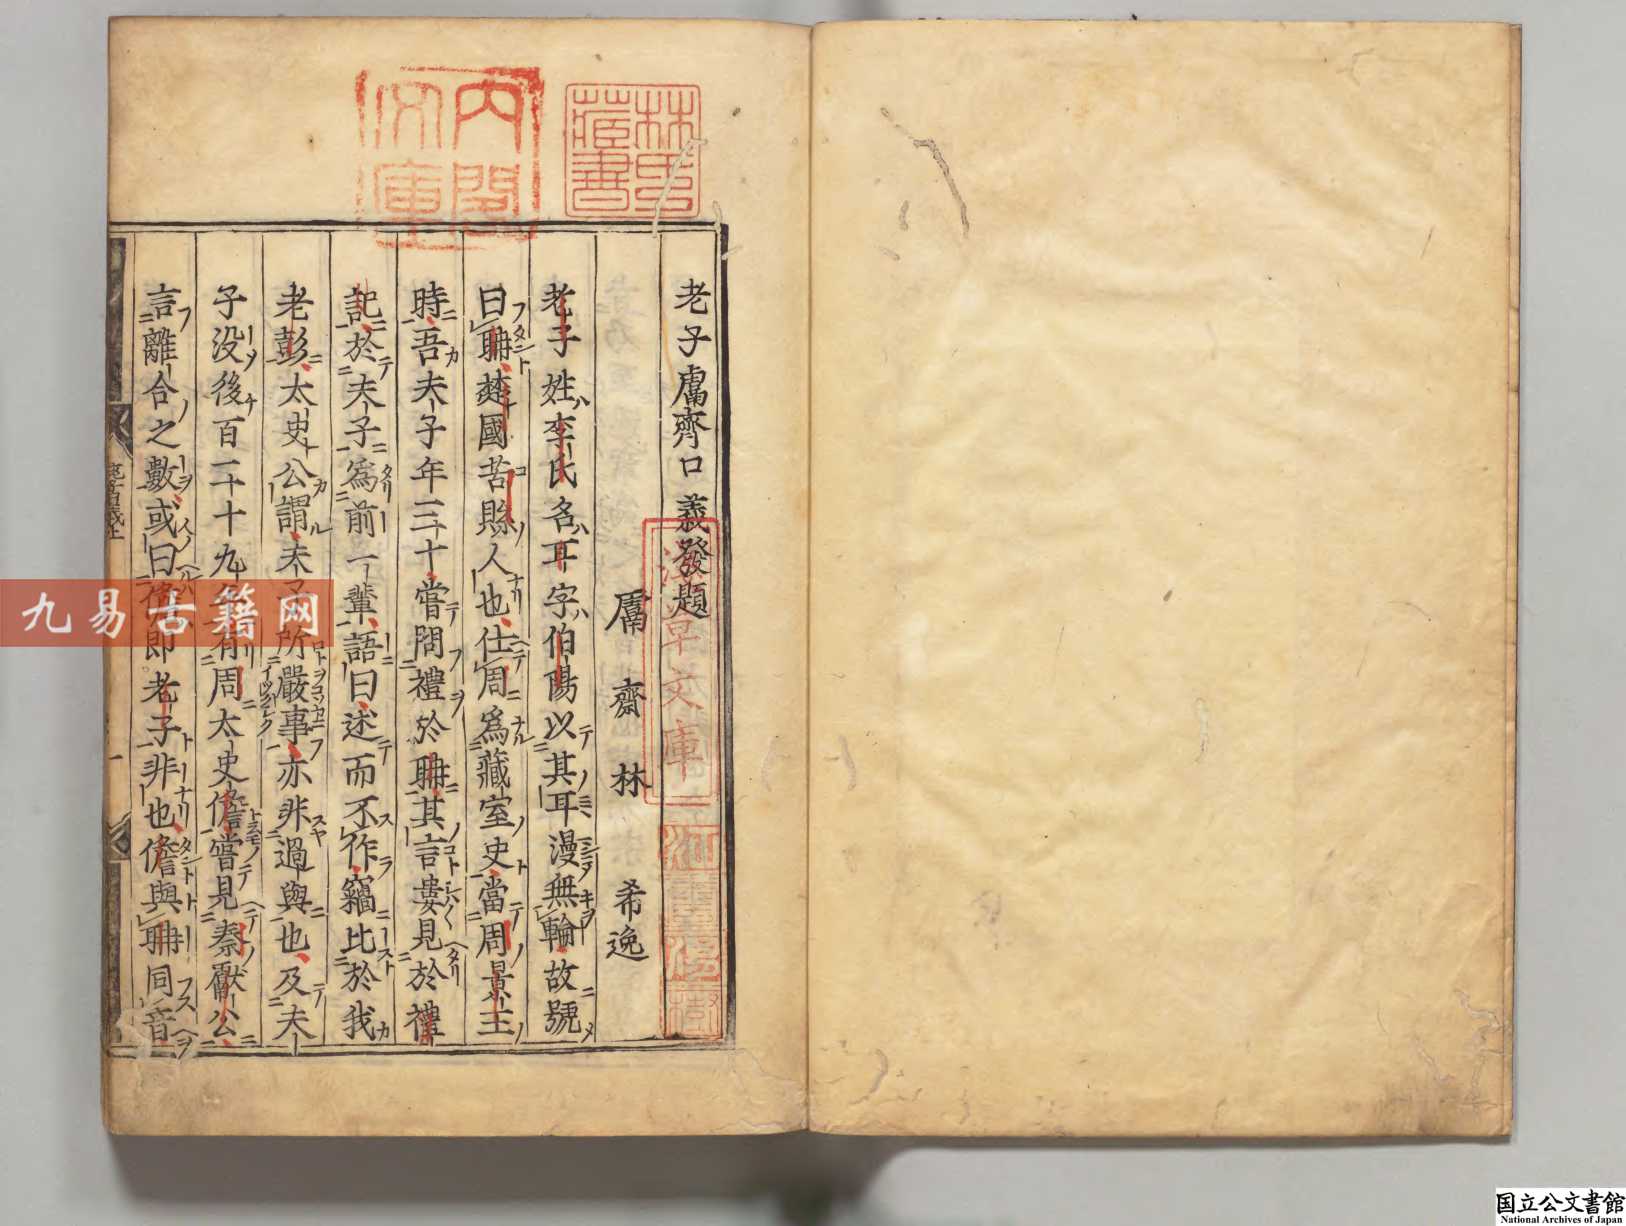 老子鬳齊口義發題
鬳齋林希逸
老子姓李氏名耳字伯陽以其耳漫無輪故號
曰耼楚國苦縣人也仕周爲藏室史當周景王
時吾夫子年三十嘗問禮於耼其言屢見於禮
記於夫子爲前一輩語曰述而不作竊比於我
老彭太史公謂夫子所嚴事亦非過與也及夫
子没後百二十九年有周太史儋嘗見秦獻公
言離合之數或曰儋即老子非也儋與耼同音
林氏藏書
内閣文庫
淺草文庫
江雲渭樹
九易古籍网
国立公文書館
National Archives of Japan